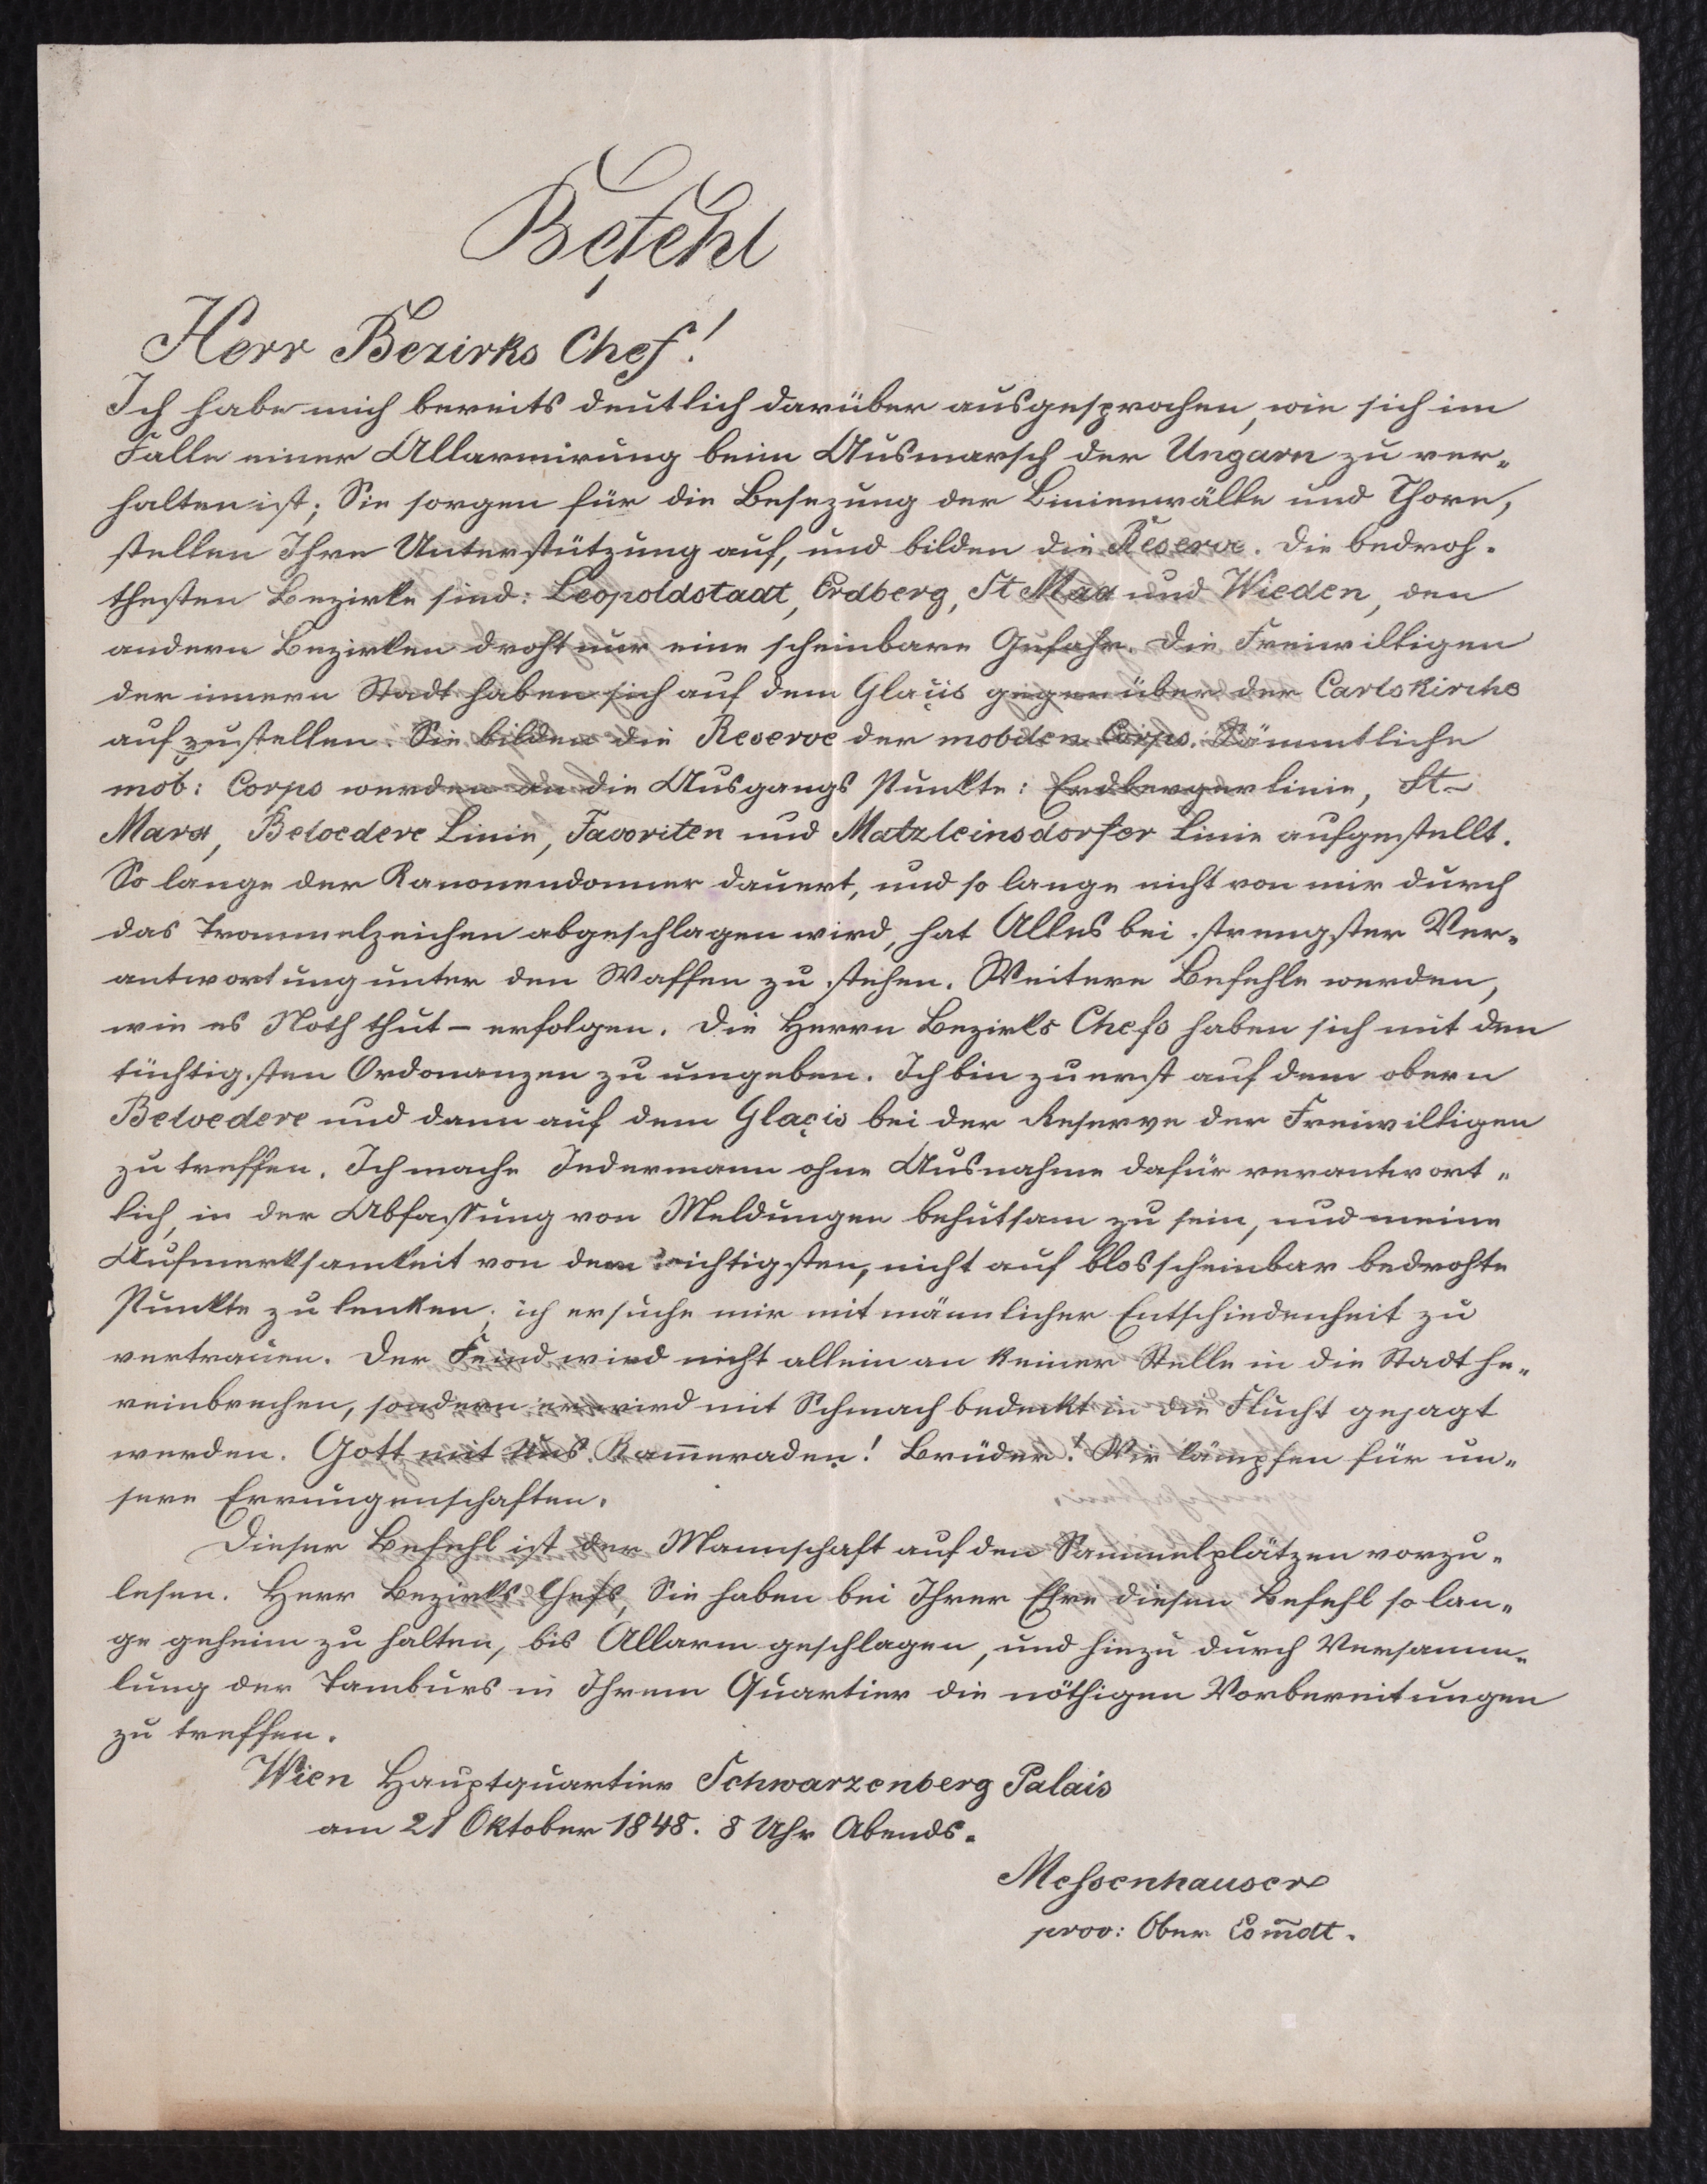 Befehl
Herr Bezirks Chef!
Ich habe mich bereits deutlich darüber ausgesprochen, wie sich im
Falle einer Allarmirung beim Ausmarsch der Ungarn zu ver-
halten ist; Sie sorgen für die Besezung der Linienwälle und Thore,
stellen Ihre Unterstützung auf, und bilden die Reserve. Die bedroh-
thesten Bezirke sind: Leopoldstadt, Erdberg, St Max und Wieden, den
andern Bezirken droht nur eine scheinbare Gefahr. Die Freiwilligen
der innern Stadt haben sich auf dem Glaçis gegenüber der Carlskirche
aufzustellen. Sie bilden die Reserve der mobilen Corps. Sämmtliche
mob: Corps werden an die Ausgangs Punkte: Erdbergerlinie, St-
Marx, Belvedere Linie, Favoriten und Matzleinsdorfer Linie aufgestellt.
So lange der Kanonendonner dauert, und so lange nicht von mir durch
das Trommelzeichen abgeschlagen wird, hat Alles bei strengster Ver-
antwortung unter den Waffen zu stehen. Weitere Befehle werden,
wie es Noth thut – erfolgen. Die Herrn Bezirks Chefs haben sich mit den
tüchtigsten Ordonanzen zu umgeben. Ich bin zuerst auf dem obern
Belvedere und dann auf dem Glaçis bei der Reserve der Freiwilligen
zu treffen. Ich mache Jedermann ohne Ausnahme dafür verantwort-
lich, in der Abfassung von Meldungen behutsam zu sein, und meine
Aufmerksamkeit von den wichtigsten, nicht auf blos scheinbar bedrohte
Punkte zu lenken; ich ersuche mir mit männlicher Entschiedenheit zu
vertrauen. Der Feind wird nicht allein an keiner Stelle in die Stadt he-
reinbrechen, sondern er wird mit Schmach bedeckt in die Flucht gejagt
werden. Gott mit uns. Kam̅eraden! Brüder! Wir kämpfen für un-
sere Errungenschaften.
Dieser Befehl ist der Mannschaft auf den Sammelplätzen vorzu-
lesen. Herr Bezirks Chefs, Sie haben bei Ihrer Ehre diesen Befehl so lan-
ge geheim zu halten, bis Allarm geschlagen, und hiezu durch Versamm-
lung der Tamburs in Ihrem Quartier die nöthigen Vorbereitungen
zu treffen.
Wien Hauptquartier Schwarzenberg Palais
am 21 Oktober 1848. 8 Uhr Abends.
Messenhauser
prov: Ober Com̅dt.